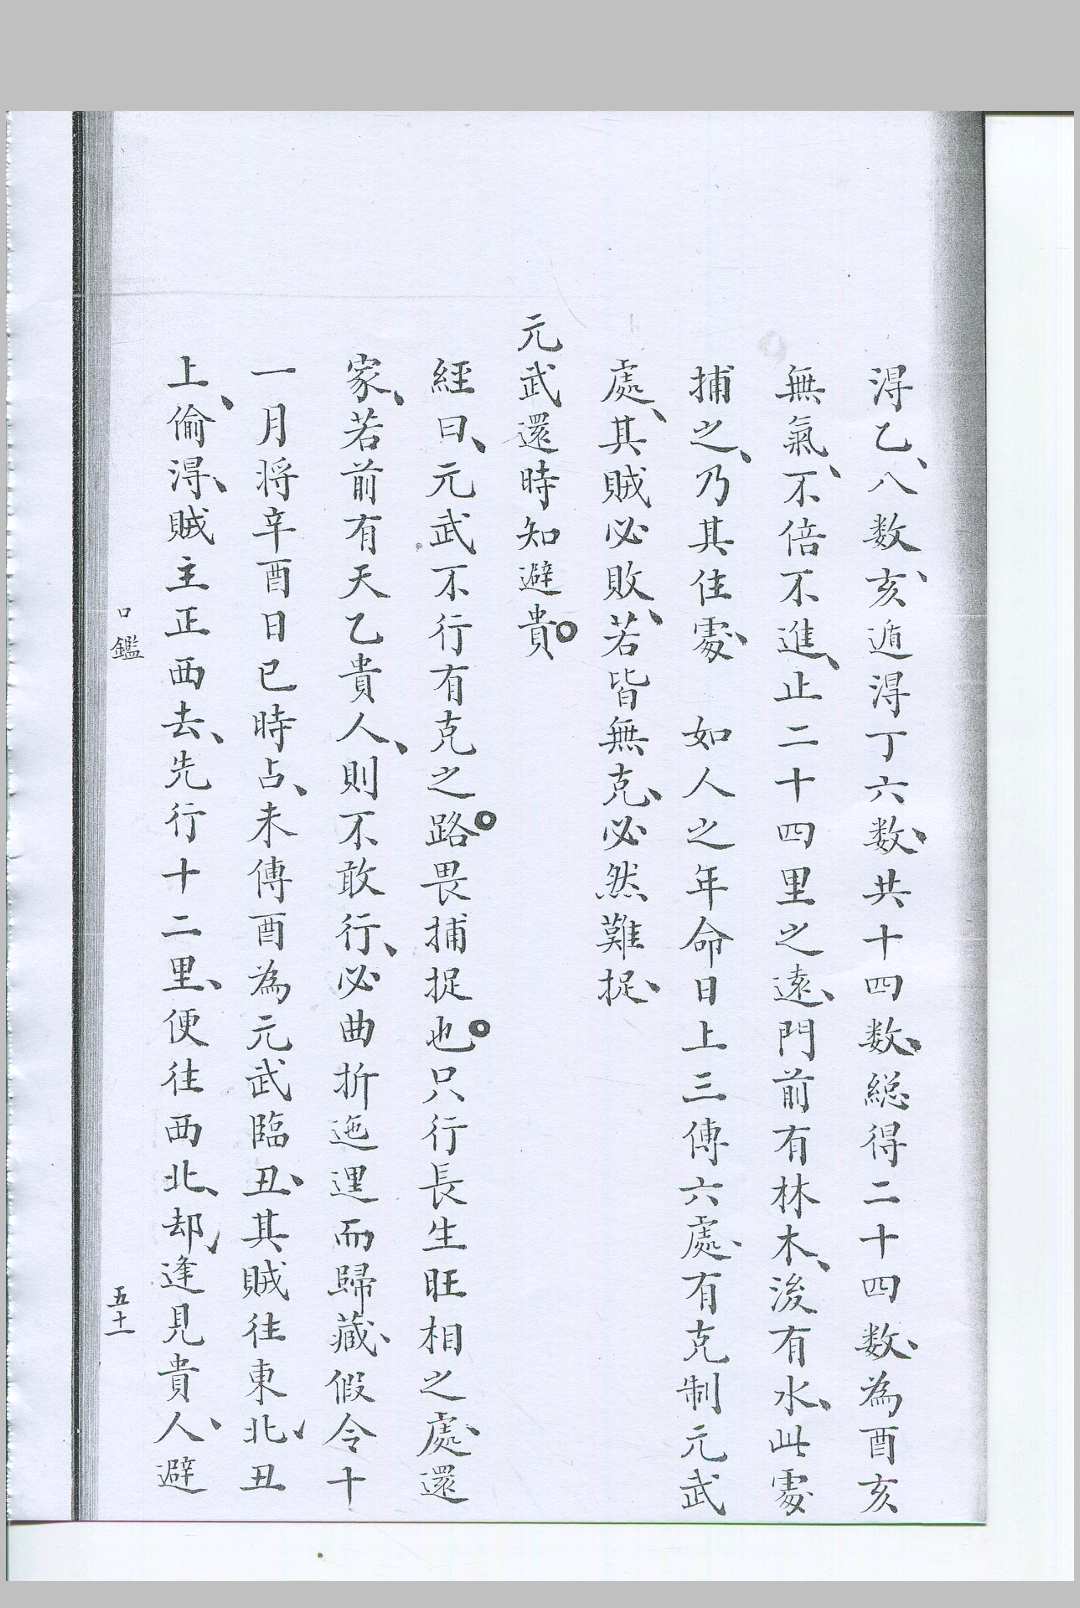 淂乙、八数、亥遁淂丁六数、共十四数、総得二十四数、為酉亥
無氣、不倍不進、止二十四里之遠、門前有林木、後有水、此處
捕之、乃其住處、如人之年命日上三傳六處、有克制元武
處、其賊必敗、若皆無克、必然難捉、
元武還時知避貴。
經曰、元武不行有克之路。畏捕捉也。只行長生旺相之處、還
家、若前有天乙貴人、則不敢行、必曲折迤逞而歸藏、假令十
一月將辛酉日巳時占、末傳酉為元武臨丑、其賊往東北、丑
上、偷淂、賊主正西去、先行十二里、便往西北、却逢見貴人、避
口鑑
五十一